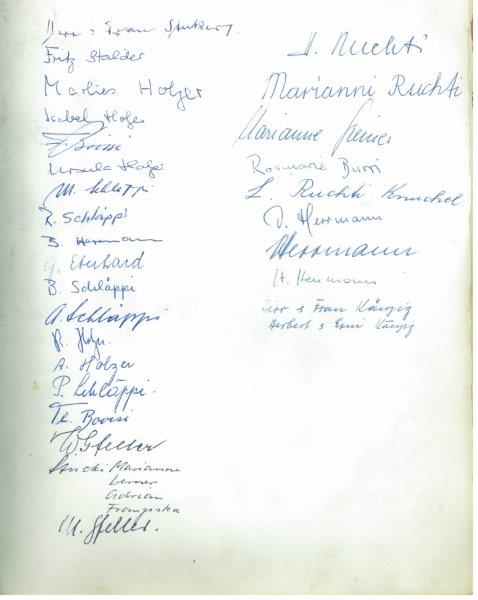 Herr & Frau
Fritz Stalder
Marlies Holzer
Isabel Hofer
Ursula Hofer
M. Schläppi
R. Schläppi
B. Herrmann
G. Eberhard
B. Schläppi
A. Schläppi
A. Holzer
P. Schläppi.
W. Gfeller
Stucki Marianne
Werner
Adrian
Franziska
M. Gfeller.
H. Ruchti
Marianni Ruchti
Marianne
Rosmarie Burri
L. Ruchti Knuchel
D. Herrmann
Herrmann
H. Herrmann
Herr & Frau Känzig
Herbert & Erni Känzig